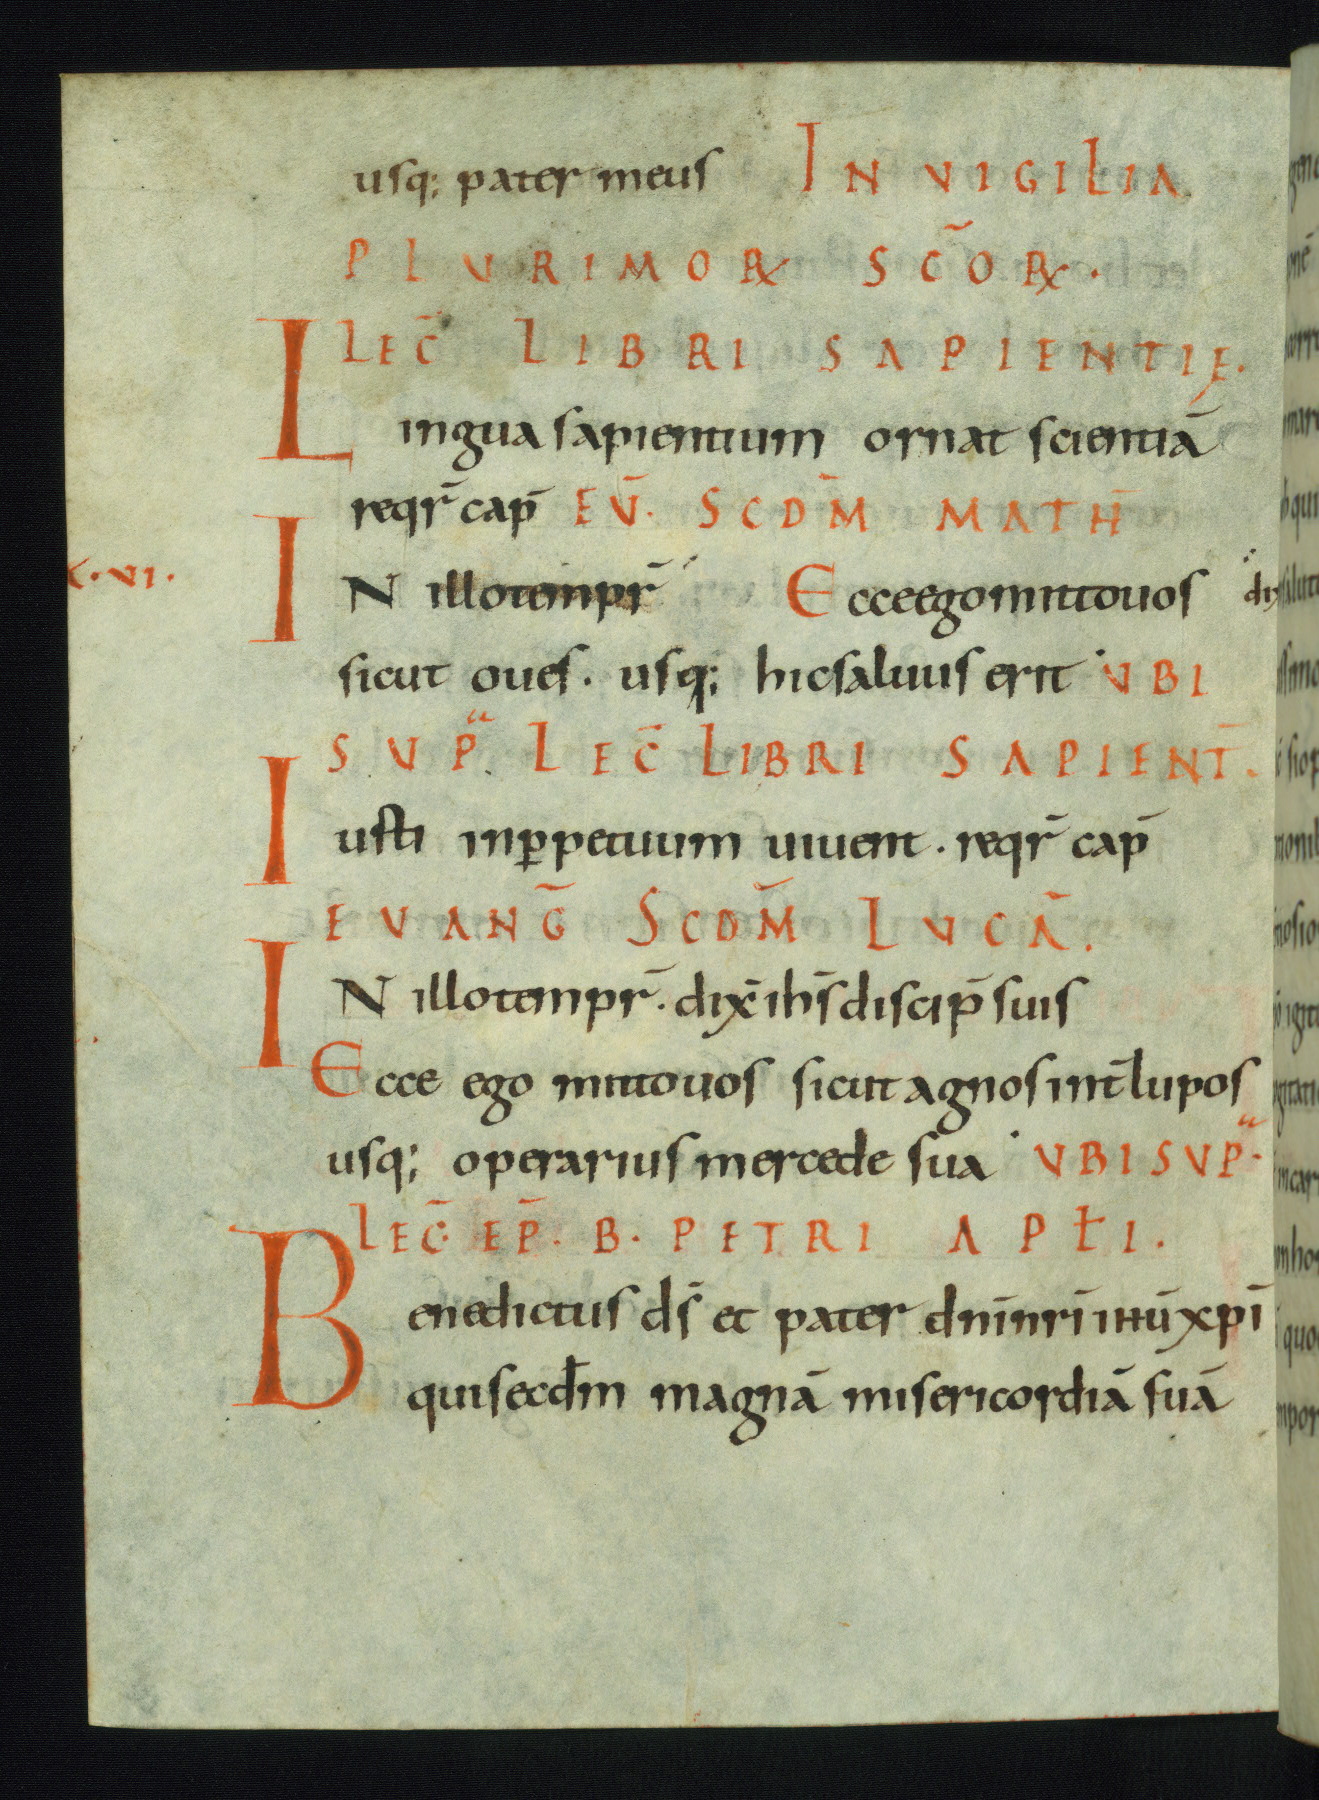 usq; pater meus IN VIGILIA
PLURIMOꝝ SC̄Oꝝ.
LEC̄ LIBRI SAPIENTIĘ.
Lingua sapientium ornat scientiā
reqr̄ cap̄ EV̄. SCDM̄ MATH̄
.VI.
IN illo tempr̄ Ecce ego mitto uos
sicut oues. usq; hic saluus erit VBI
SVP LEC̄ LIBRI SAPIENT̄.
Iusti inꝑpetuum uiuent. reqr̄ cap̄
EVANḠ SCDM̄ LVCĀ.
IN illo tempr̄. dix̄ ih̄s discip̄ suis
Ecce ego mitto uos sicut agnos int̄ lupos
usq; operarius mercede sua VBI SVP.
LEC̄. EP̄. B. PETRI APŁI.
Benedictus ds̄ et pater dn̄i nr̄i ihū xp̄i
qui secdm̄ magnā misericordiā suā